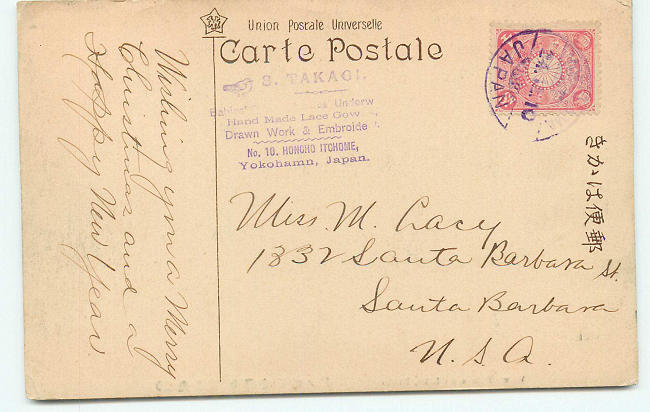 Union Postale Universelle
Carte Postale
S. TAKAGI.
Underw
Hand Made Lace Gow
Drawn Work & Embroide
No. 10. HONCHO ITCHOME,
Yokohamn, Japan.
JAPAN
きかは便郵
Wishing you a Merry
Christmas and a
Happy New Year
Miss M. Lacy
1332 Santa Barbara St.
Santa Barbara
U.S.A.